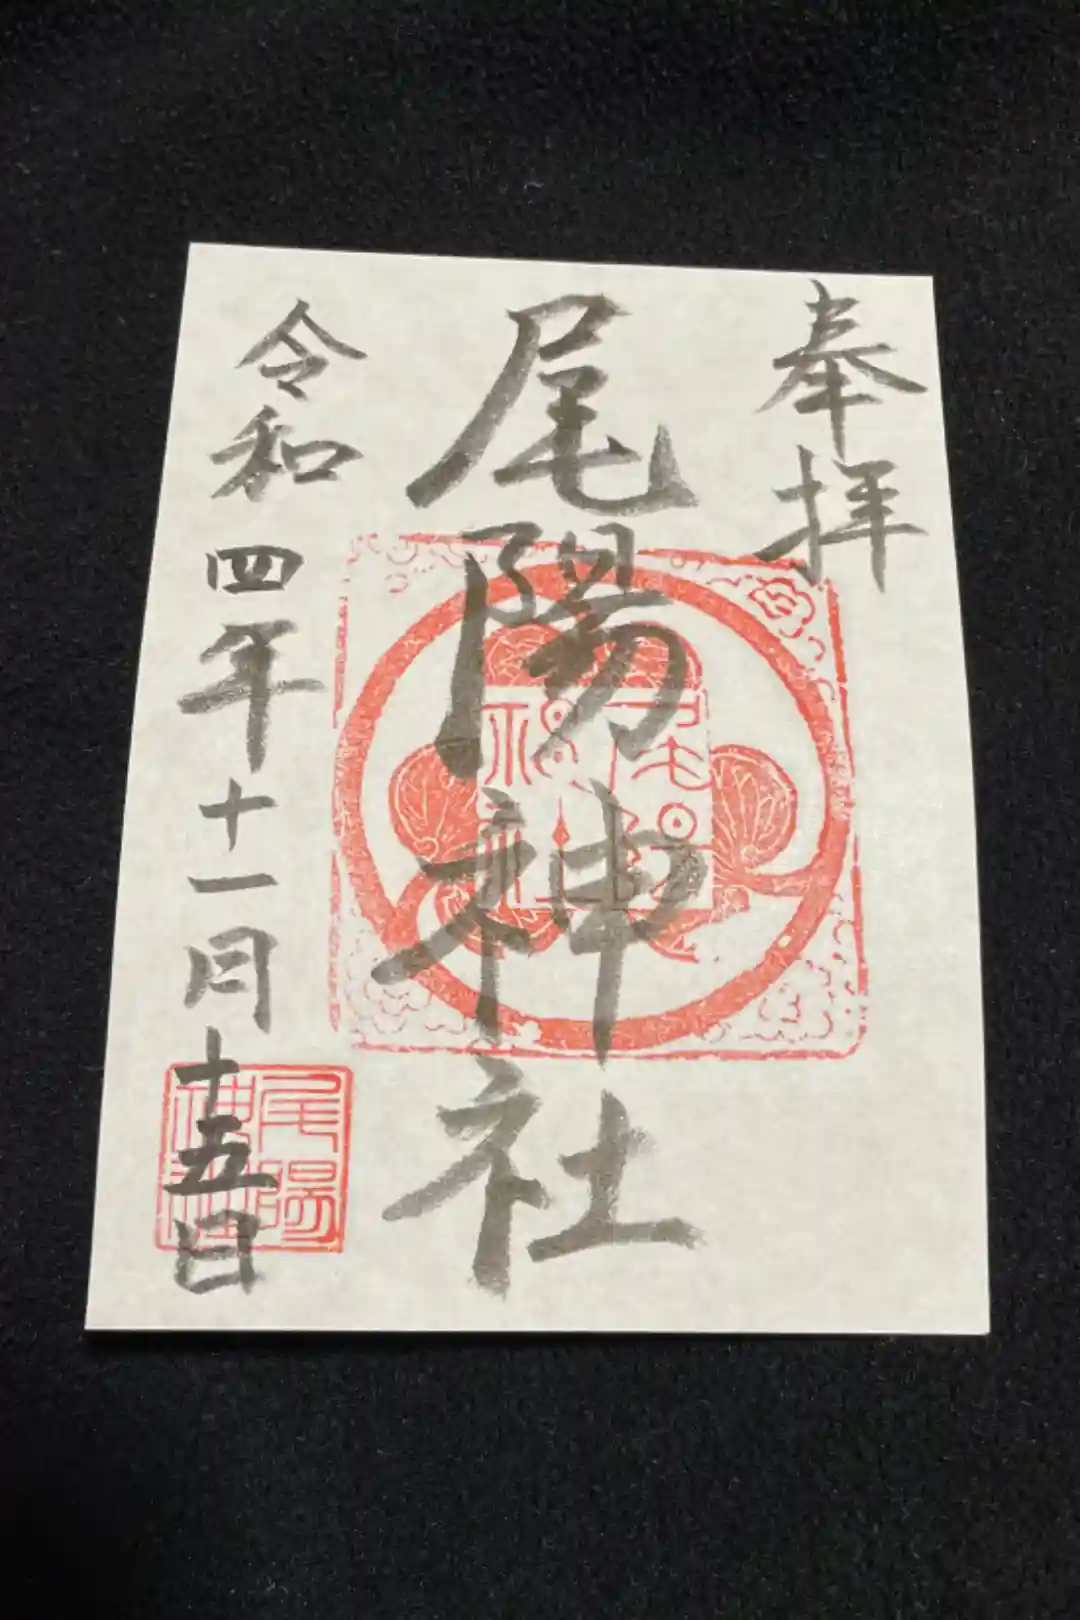 奉拝
尾陽神社
令和四年十一月十五日
尾陽
神社